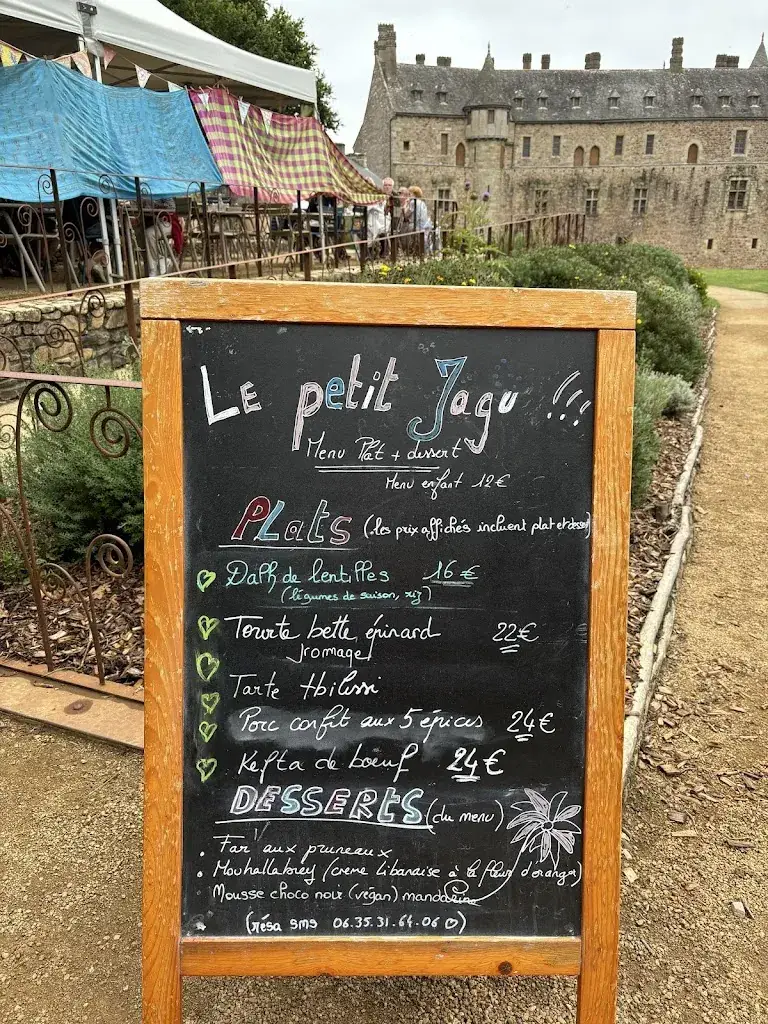 Le petit Jagu !!!
Menu Plat + dessert
Menu enfant 12€
PLats (les prix affichés incluent plat et dessert)
Dalh de lentilles 16€
(légumes de saison, riz)
Tourte bette épinard 22€
fromage
Tarte tbilissi
Porc confit aux 5 épices 24€
Kefta de bœuf 24€
DESSERTS (du menu)
. Far aux pruneaux
. Mouhallabiey (crème libanaise à la fleur d'oranger)
Mousse choco noir (végan) mandarine
(résa sms 06.35.31.64.06)